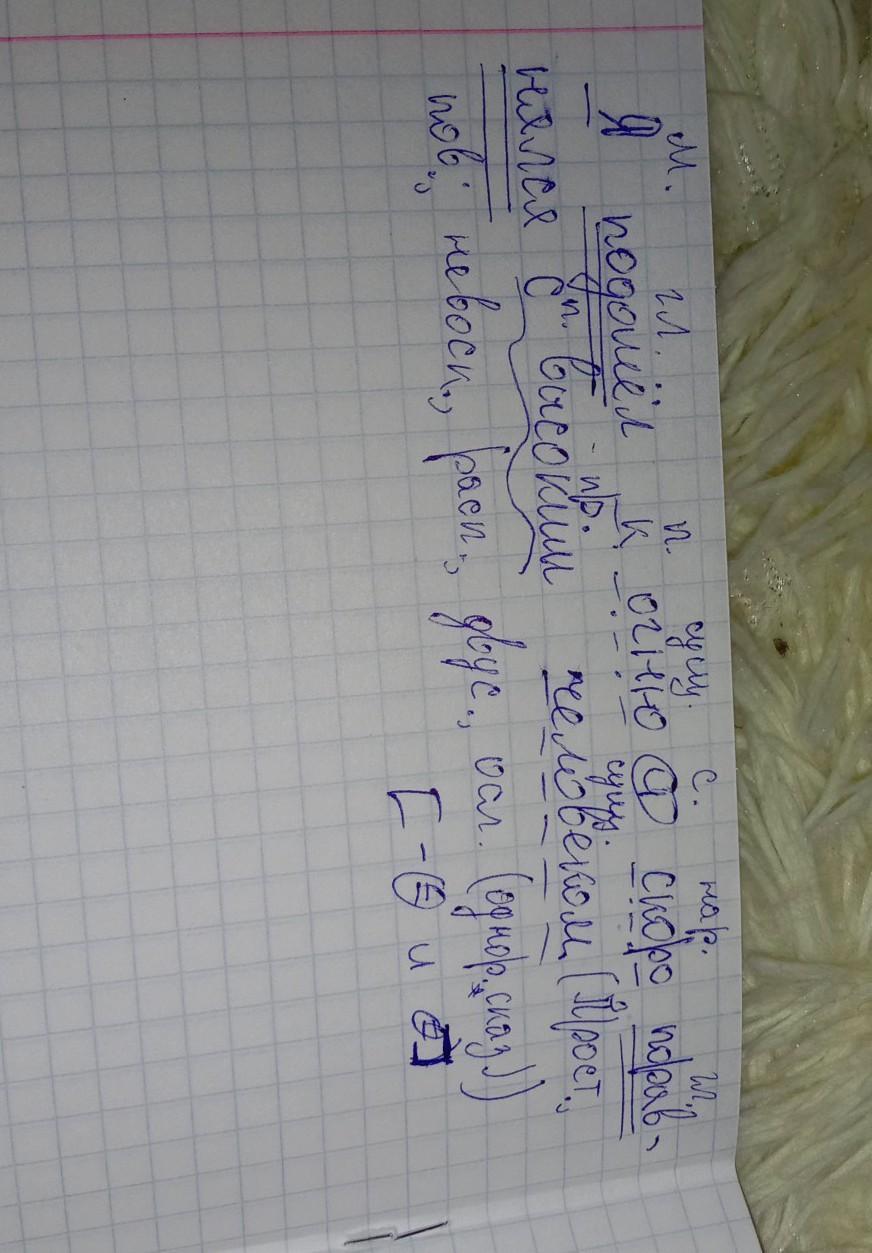 м. гл. п. сущ. с. нар. гл.
Я подошёл к огню и скоро порав-
п. пр. сущ.
нялся с высоким человеком (Прост.,
пов., невоск., расп., двус., осл. (однор. сказ.))
[- = и =]